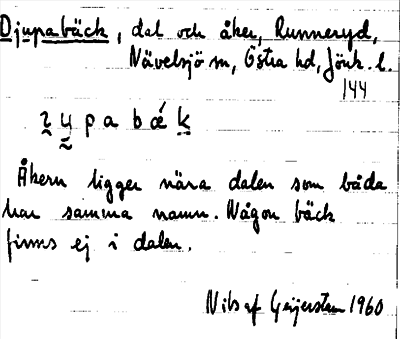 Djupabäck, dal och åker, Runneryd,
Nävelsjö sn, Östra hd, Jönk. l.
144
ɿ y p a b ǽ k
Åkern ligger nära dalen som båda
har samma namn. Någon bäck
finns ej i dalen.
Nils af Geijerstam 1960